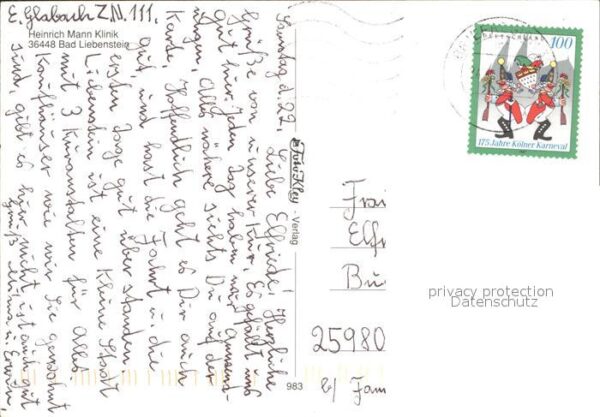 E. Glabach Z.N. 111.
Heinrich Mann Klinik
36448 Bad Liebenstein
Samstag d. 22. Liebe Elfriede! Herzliche
Grüße von unserer Kur. Es gefällt uns
gut hier. Jeden Tag haben wir Anwend-
ungen, alles nähere siehts Du auf der
Karte. Hoffendlich geht es Dir auch
gut, und hast die Fahrt u. die
ersten Tage gut überstanden.
Liebenstein ist eine kleine Stadt
mit 3 Kuranstalten für alles
Kaufhäuser wie wir Sie gewohnt
sind, gibt es hier nicht, ist auch gut
Gruß
u. Erwin
Foto Kley - Verlag
983
DEUTSCHLAND
100
175 Jahre Kölner Karneval
Frau
Elfr
Bu
25980
b/ Fam
privacy protection
Datenschutz